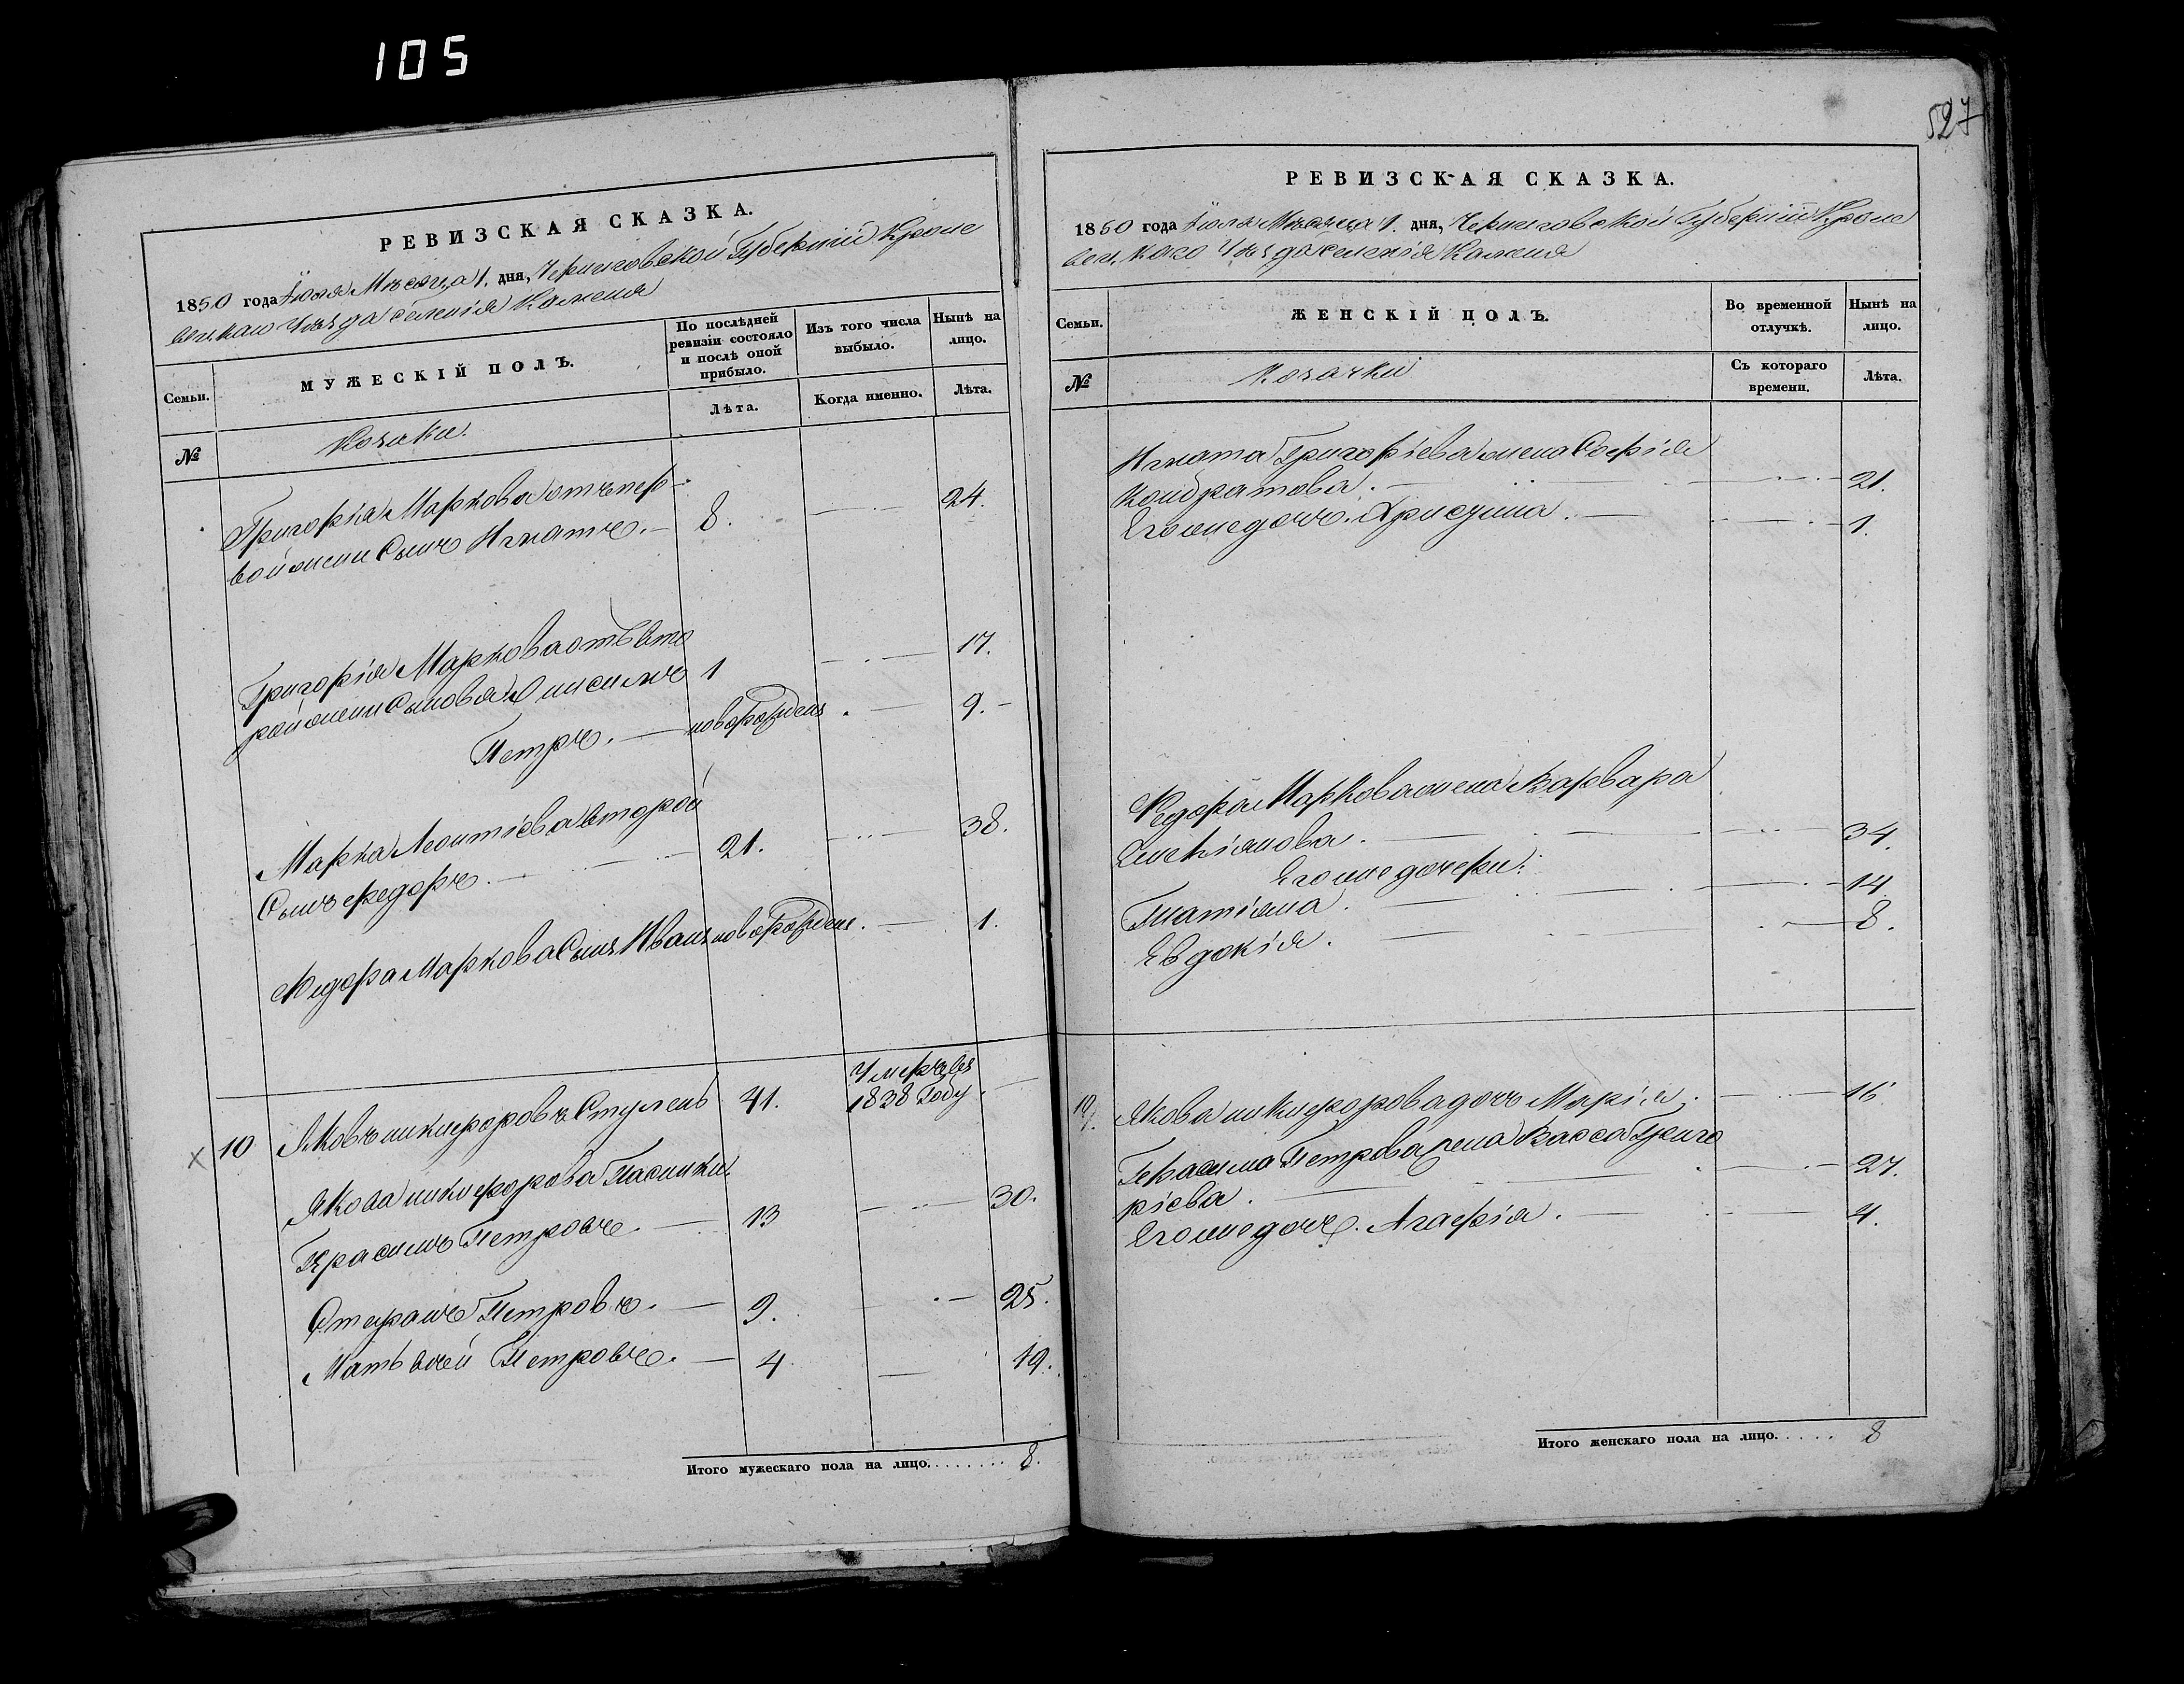 105
РЕВИЗСКАЯ СКАЗКА.
1850 года Июля Месяца 1. дня, Черниговской Губернии Кроле
вецкаго Уезда селенія Каменя
Семьи.
МУЖЕСКІЙ ПОЛЪ.
По послѣдней ревизіи состояло и послѣ оной прибыло.
Изъ того числа выбыло.
Нынѣ на лицо.
№
Козаки.
Лѣта.
Когда именно.
Лѣта.
Григорія Маркова отъ пер-
вой жены Сынъ Игнатъ. 8. 24.
Григорія Маркова отъ вто
рой жены Сыновья Анисимъ 1 17.
Петръ. новорожденъ 9.
Марка Леонтіева второй
Сынъ Федоръ. 21. 38.
Федора Маркова Сынъ Иванъ новорожден. 1.
10 Яковъ никифоровъ Ступень 41. Умеръ въ
1838 Году.
Якова никифорова Пасынки
Герасимъ Петровъ 13 30.
Стефанъ Петровъ. 9. 25.
Матвѣй Петровъ. 4 19.
Итого мужескаго пола на лицо....... 8.
527
РЕВИЗСКАЯ СКАЗКА.
1850 года Июля Месяца 1. дня, Черниговской Губерніи Кроле
вецкаго Уезда селенія Каменя
Семьи.
ЖЕНСКІЙ ПОЛЪ.
Во временной отлучкѣ.
Нынѣ на лицо.
№
Козачки
Съ котораго времени.
Лѣта.
Игната Григоріева жена Софія
Кондратова. 21.
Его же дочь. Хрисдина. 1.
Федора Маркова жена Варвара
34.
Его же дочери:
Татіяна. 14.
Евдокія. 8.
10. Якова никифорова дочь Марія. 16.
Герасима Петрова жена Васса Григо
ріева. 27.
Его же дочь. Агафія. 4.
Итого женскаго пола на лицо..... 8